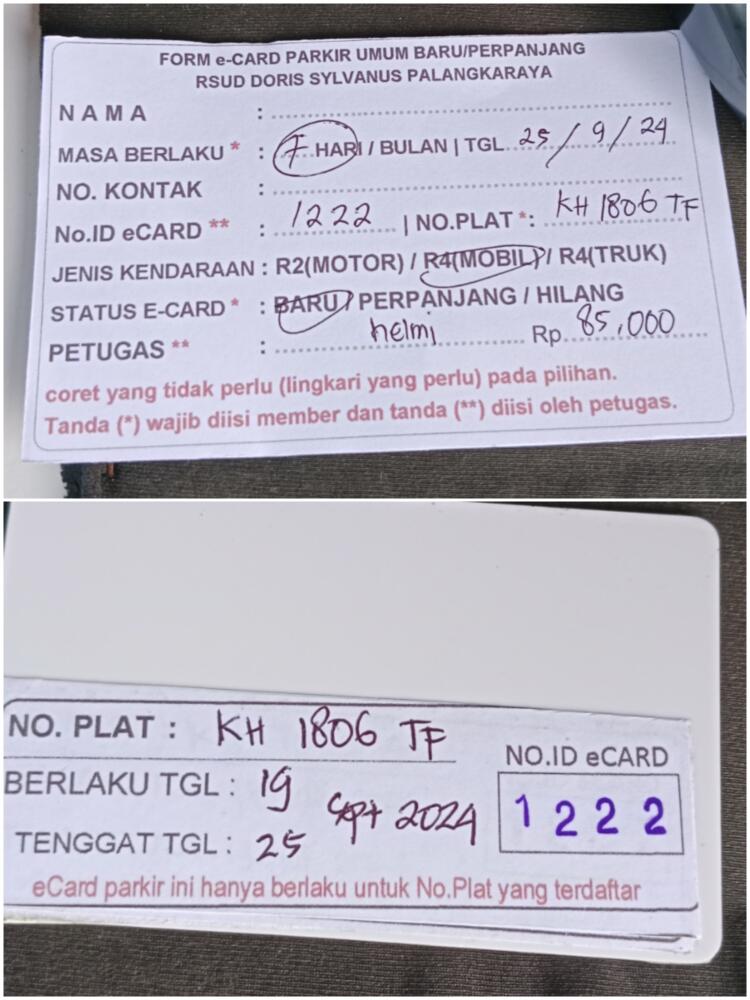 FORM e-CARD PARKIR UMUM BARU/PERPANJANG
RSUD DORIS SYLVANUS PALANGKARAYA
NAMA :
MASA BERLAKU * : 7 HARI / BULAN | TGL 25 / 9 / 24
NO. KONTAK :
No.ID eCARD ** : 1222 | NO.PLAT *: KH 1806 TF
JENIS KENDARAAN : R2(MOTOR) / R4(MOBIL) / R4(TRUK)
STATUS E-CARD * : BARU / PERPANJANG / HILANG
PETUGAS ** : helmi Rp. 85.000
coret yang tidak perlu (lingkari yang perlu) pada pilihan.
Tanda (*) wajib diisi member dan tanda (**) diisi oleh petugas.
NO. PLAT : KH 1806 TF
NO.ID eCARD
BERLAKU TGL : 19
Sept 2024
1222
TENGGAT TGL : 25
eCard parkir ini hanya berlaku untuk No.Plat yang terdaftar